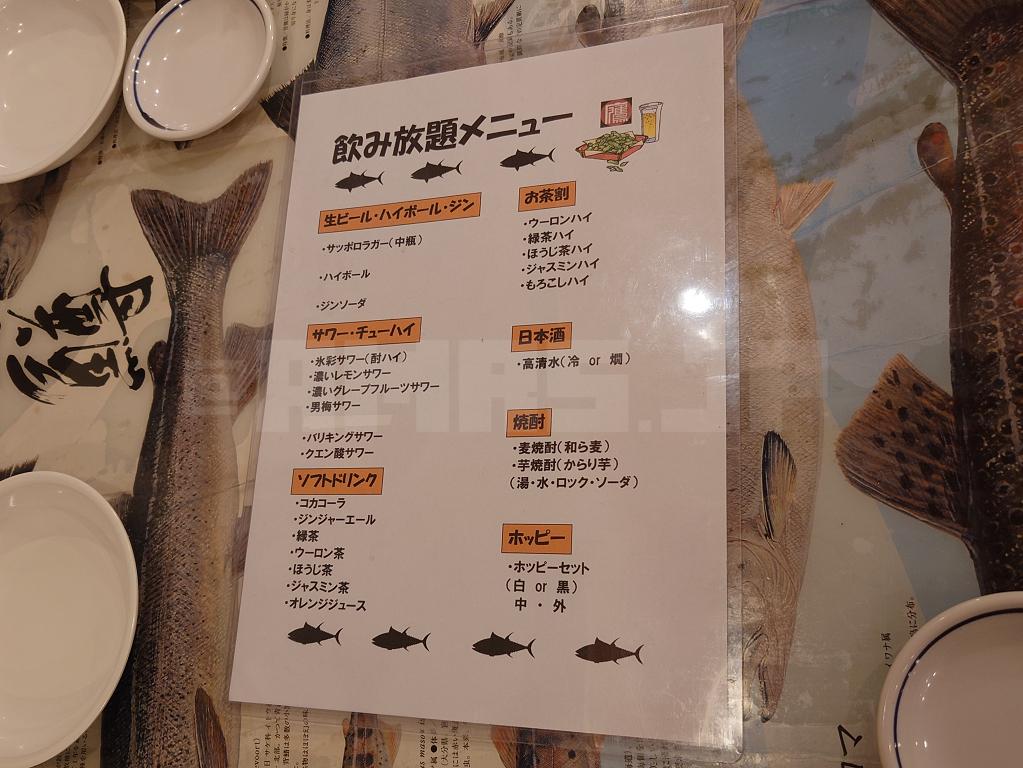 飲み放題メニュー
鷹
生ビール・ハイボール・ジン
・サッポロラガー(中瓶)
・ハイボール
・ジンソーダ
サワー・チューハイ
・氷彩サワー(酎ハイ)
・濃いレモンサワー
・濃いグレープフルーツサワー
・男梅サワー
・バリキングサワー
・クエン酸サワー
ソフトドリンク
・コカコーラ
・ジンジャーエール
・緑茶
・ウーロン茶
・ほうじ茶
・ジャスミン茶
・オレンジジュース
お茶割
・ウーロンハイ
・緑茶ハイ
・ほうじ茶ハイ
・ジャスミンハイ
・もろこしハイ
日本酒
・高清水(冷 or 燗)
焼酎
・麦焼酎(和ら麦)
・芋焼酎(からり芋)
(湯・水・ロック・ソーダ)
ホッピー
・ホッピーセット
(白 or 黒)
中・外
イワナ属
に分布。